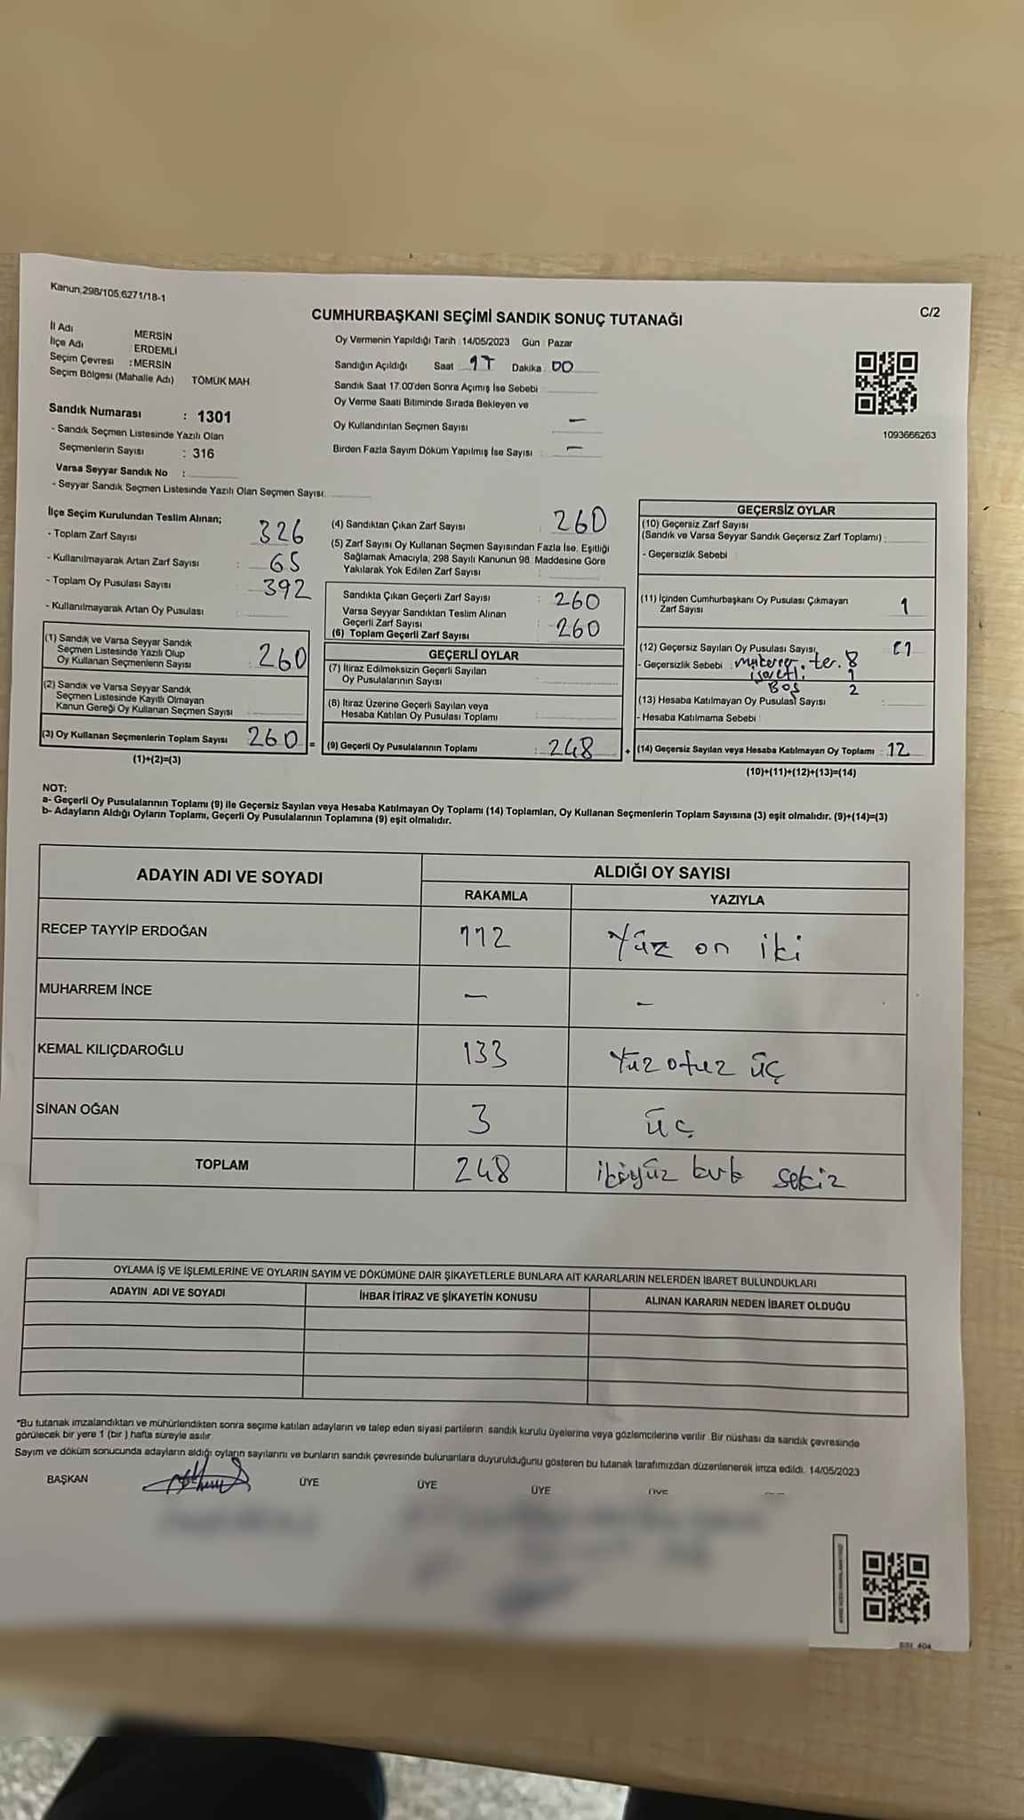 Kanun:298/105.6271/18-1
C/2
CUMHURBAŞKANI SEÇİMİ SANDIK SONUÇ TUTANAĞI
İl Adı MERSİN
İlçe Adı ERDEMLİ
Seçim Çevresi : MERSİN
Seçim Bölgesi (Mahalle Adı) TÖMÜK MAH.
Sandık Numarası : 1301
- Sandık Seçmen Listesinde Yazılı Olan
Seçmenlerin Sayısı : 316
Varsa Seyyar Sandık No :
- Seyyar Sandık Seçmen Listesinde Yazılı Olan Seçmen Sayısı:
Oy Vermenin Yapıldığı Tarih 14/05/2023 Gün Pazar
Sandığın Açıldığı Saat 17 Dakika 00
Sandık Saat 17.00'den Sonra Açımış İse Sebebi
Oy Verme Saati Bitiminde Sırada Bekleyen ve
Oy Kullandırılan Seçmen Sayısı —
Birden Fazla Sayım Döküm Yapılmış İse Sayısı —
1093666263
İlçe Seçim Kurulundan Teslim Alınan;
- Toplam Zarf Sayısı : 326
- Kullanılmayarak Artan Zarf Sayısı : 65
- Toplam Oy Pusulası Sayısı : 392
- Kullanılmayarak Artan Oy Pusulası
(1) Sandık ve Varsa Seyyar Sandık
Seçmen Listesinde Yazılı Olup
Oy Kullanan Seçmenlerin Sayısı : 260
(2) Sandık ve Varsa Seyyar Sandık
Seçmen Listesinde Kayıtlı Olmayan
Kanun Gereği Oy Kullanan Seçmen Sayısı
(3) Oy Kullanan Seçmenlerin Toplam Sayısı 260
(1)+(2)=(3)
(4) Sandıktan Çıkan Zarf Sayısı 260
(5) Zarf Sayısı Oy Kullanan Seçmen Sayısından Fazla İse, Eşitliği
Sağlamak Amacıyla, 298 Sayılı Kanunun 98. Maddesine Göre
Yakılarak Yok Edilen Zarf Sayısı
Sandıkta Çıkan Geçerli Zarf Sayısı : 260
Varsa Seyyar Sandıktan Teslim Alınan
Geçerli Zarf Sayısı
(6) Toplam Geçerli Zarf Sayısı 260
GEÇERLİ OYLAR
(7) İtiraz Edilmeksizin Geçerli Sayılan
Oy Pusulalarının Sayısı
(8) İtiraz Üzerine Geçerli Sayılan veya
Hesaba Katılan Oy Pusulası Toplamı
= (9) Geçerli Oy Pusulalarının Toplamı : 248
GEÇERSİZ OYLAR
(10) Geçersiz Zarf Sayısı
(Sandık ve Varsa Seyyar Sandık Geçersiz Zarf Toplamı) :
- Geçersizlik Sebebi
(11) İçinden Cumhurbaşkanı Oy Pusulası Çıkmayan
Zarf Sayısı 1
(12) Geçersiz Sayılan Oy Pusulası Sayısı
- Geçersizlik Sebebi ter. 8
1
BOŞ 2
(13) Hesaba Katılmayan Oy Pusulası Sayısı
- Hesaba Katılmama Sebebi
+ (14) Geçersiz Sayılan veya Hesaba Katılmayan Oy Toplamı 12
(10)+(11)+(12)+(13)=(14)
NOT:
a- Geçerli Oy Pusulalarının Toplamı (9) ile Geçersiz Sayılan veya Hesaba Katılmayan Oy Toplamı (14) Toplamları, Oy Kullanan Seçmenlerin Toplam Sayısına (3) eşit olmalıdır. (9)+(14)=(3)
b- Adayların Aldığı Oyların Toplamı, Geçerli Oy Pusulalarının Toplamına (9) eşit olmalıdır.
ADAYIN ADI VE SOYADI
ALDIĞI OY SAYISI
RAKAMLA YAZIYLA
RECEP TAYYİP ERDOĞAN 112 Yüz on iki
MUHARREM İNCE — —
KEMAL KILIÇDAROĞLU 133 Yüz otuz üç
SİNAN OĞAN 3 üç
TOPLAM 248 ikiyüz kırk sekiz
OYLAMA İŞ VE İŞLEMLERİNE VE OYLARIN SAYIM VE DÖKÜMÜNE DAİR ŞİKAYETLERLE BUNLARA AİT KARARLARIN NELERDEN İBARET BULUNDUKLARI
ADAYIN ADI VE SOYADI İHBAR İTİRAZ VE ŞİKAYETİN KONUSU ALINAN KARARIN NEDEN İBARET OLDUĞU
*Bu tutanak imzalandıktan ve mühürlendikten sonra seçime katılan adayların ve talep eden siyasi partilerin sandık kurulu üyelerine veya gözlemcilerine verilir. Bir nüshası da sandık çevresinde
görülecek bir yere 1 (bir) hafta süreyle asılır
Sayım ve döküm sonucunda adayların aldığı oyların sayılarını ve bunların sandık çevresinde bulunanlara duyurulduğunu gösteren bu tutanak tarafımızdan düzenlenerek imza edildi. 14/05/2023
BAŞKAN ÜYE ÜYE ÜYE ÜYE